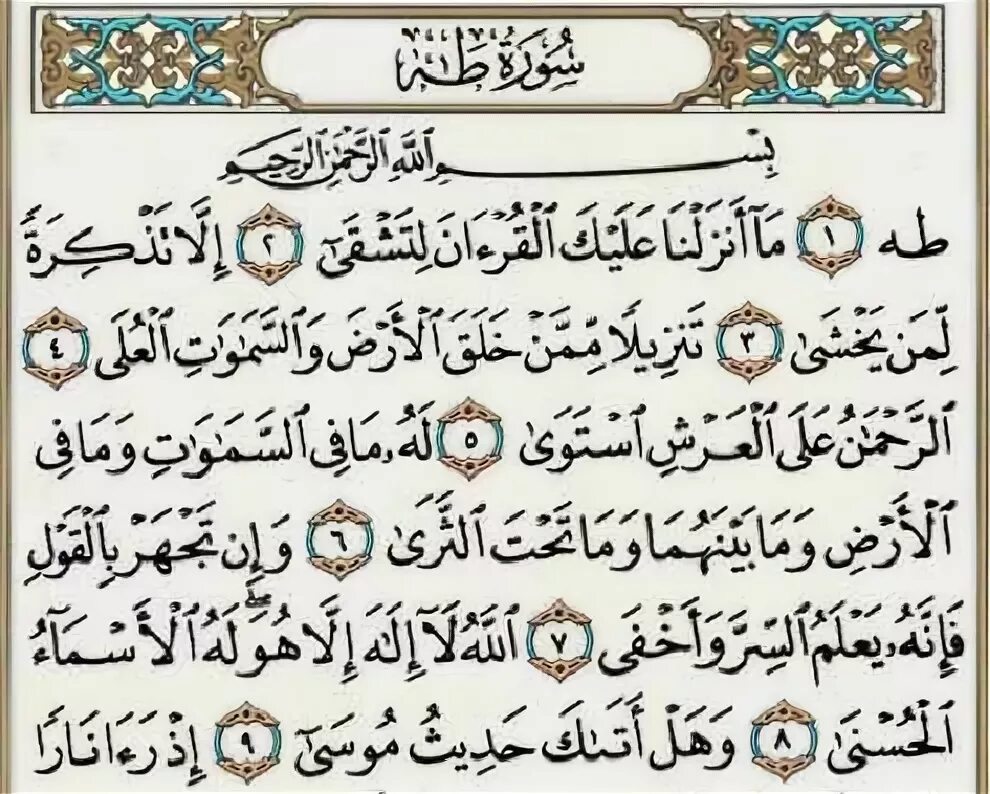 سُورَةُ طه
بِسْمِ ٱللَّهِ ٱلرَّحْمَٰنِ ٱلرَّحِيمِ
طه ١ مَآ أَنزَلْنَا عَلَيْكَ ٱلْقُرْءَانَ لِتَشْقَىٰٓ ٢ إِلَّا تَذْكِرَةً
لِّمَن يَخْشَىٰ ٣ تَنزِيلًا مِّمَّنْ خَلَقَ ٱلْأَرْضَ وَٱلسَّمَٰوَٰتِ ٱلْعُلَى ٤
ٱلرَّحْمَٰنُ عَلَى ٱلْعَرْشِ ٱسْتَوَىٰ ٥ لَهُۥ مَا فِى ٱلسَّمَٰوَٰتِ وَمَا فِى
ٱلْأَرْضِ وَمَا بَيْنَهُمَا وَمَا تَحْتَ ٱلثَّرَىٰ ٦ وَإِن تَجْهَرْ بِٱلْقَوْلِ
فَإِنَّهُۥ يَعْلَمُ ٱلسِّرَّ وَأَخْفَى ٧ ٱللَّهُ لَآ إِلَٰهَ إِلَّا هُوَ ۖ لَهُ ٱلْأَسْمَآءُ
ٱلْحُسْنَىٰ ٨ وَهَلْ أَتَىٰكَ حَدِيثُ مُوسَىٰٓ ٩ إِذْ رَءَا نَارًا